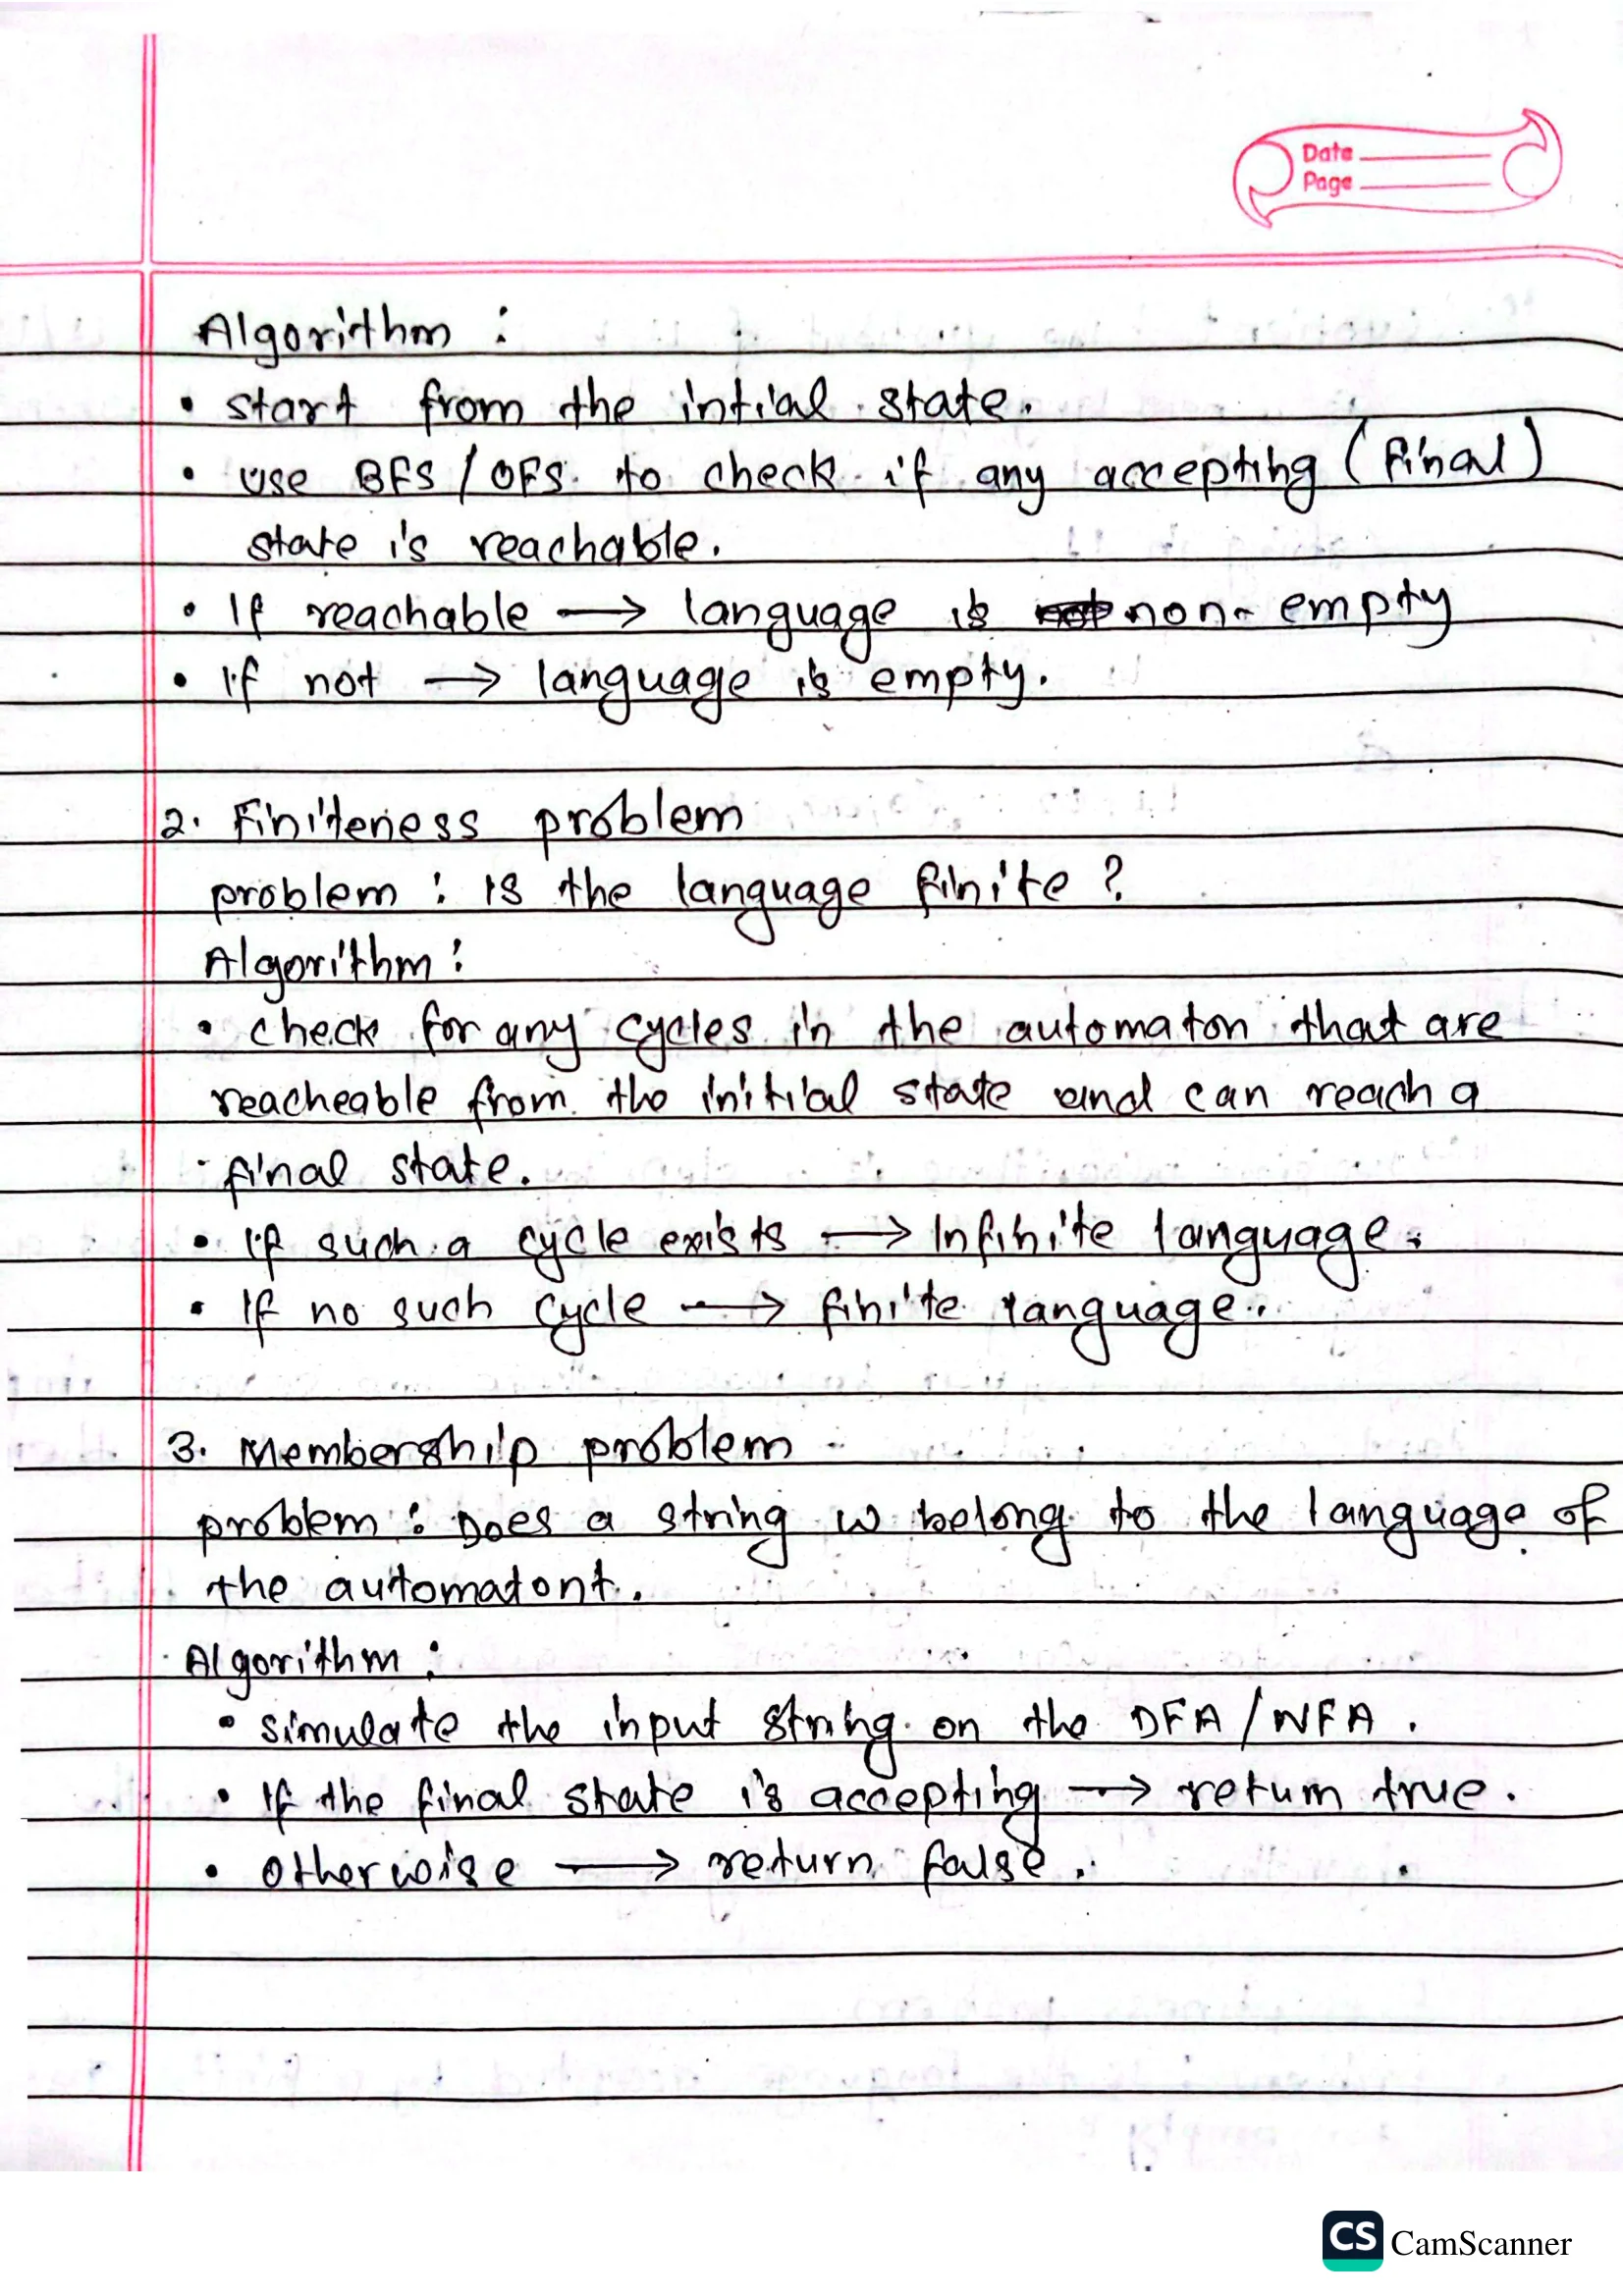 Date
Page
Algorithm :
• start from the intial state.
• use BFS / DFS to check if any accepting (final)
state is reachable.
• If reachable → language is non-empty
• if not → language is empty.
2. Finiteness problem
problem : Is the language finite ?
Algorithm :
• check for any cycles in the automaton that are
reacheable from the initial state and can reach a
final state.
• if such a cycle exists → Infinite language.
• If no such cycle → finite language.
3. Membership problem
problem : Does a string w belong to the language of
the automatont.
Algorithm :
• simulate the input string on the DFA / NFA .
• If the final state is accepting → return true.
• otherwise → return false .
CS CamScanner